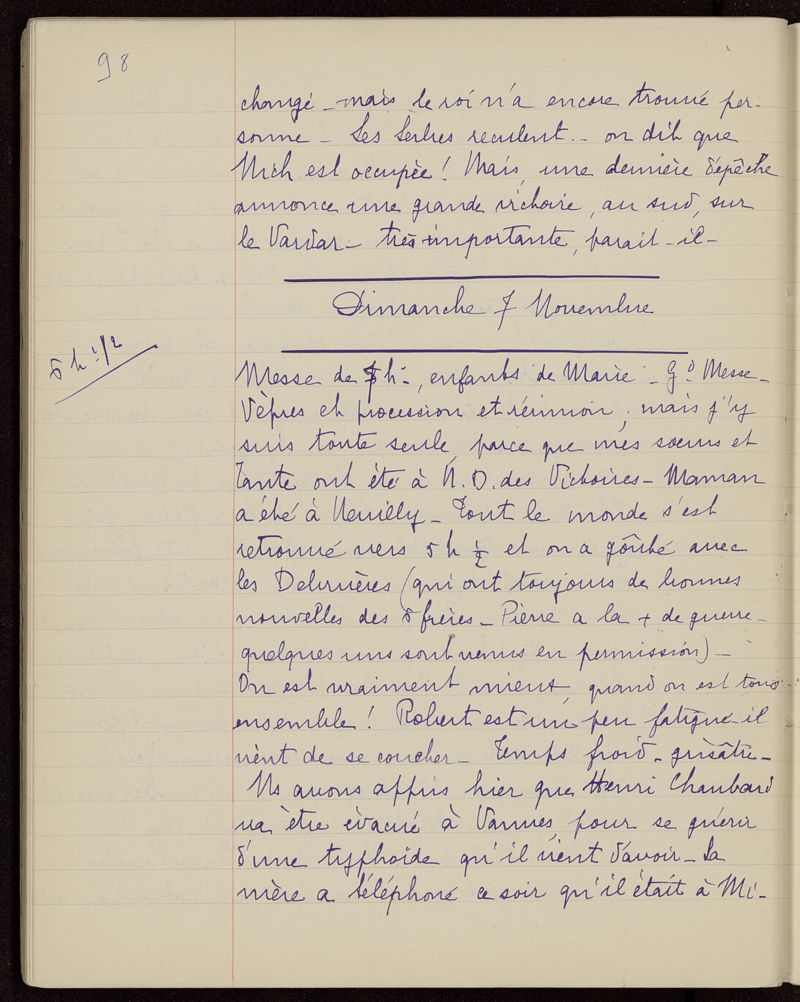 98
changé - mais le roi n'a encore trouvé per-
sonne - Les Serbes reculent.. on dit que
Nich est occupée! Mais, une dernière dépêche
annonce une grande victoire, au sud, sur
le Vardar - très importante, parait-il -
Dimanche 7 Novembre
5 h 1/2
Messe de 7h -, enfants de Marie - Gd Messe -
Vêpres et procession et réunion, mais j'y
suis toute seule, parce que mes soeurs et
Tante ont été à N.D. des Victoires - Maman
a été à Neuilly - Tout le monde s'est
retrouvé vers 5 h 1/2 et on a goûté avec
les (qui ont toujours de bonnes
nouvelles des 5 frères - Pierre a la + de guerre -
quelques uns sont venus en permission) -
On est vraiment mieux, quand on est tous
ensemble! Robert est un peu fatigué - il
vient de se coucher - Temps froid - grisâtre -
Ns avons appris hier que Henri Chaubard
va être évacué à Vannes, pour se guérir
d'une typhoïde qu'il vient d'avoir - Sa
mère a téléphoné ce soir qu'il était à Mi-